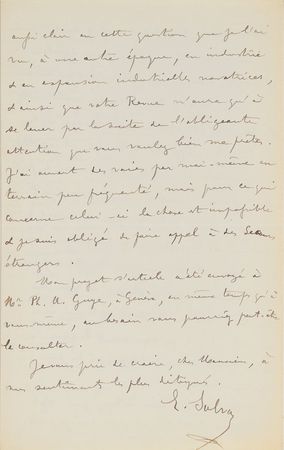 aussi clair en cette question que je l'ai
vu, à une autre époque, en industrie
& en expansion industrielles novatrices,
& ainsi que votre Revue n'aura qu'à
se louer par la suite de l'obligeante
attention que vous voulez bien me prêter.
J'ai ouvert des voies par moi-même en
terrain peu fréquenté, mais pour ce qui
concerne celui-ci la chose est impossible
& je suis obligé de faire appel à des
étrangers.
Mon projet d'article a été envoyé à
Mr Ph. A. Guye, à Genève, en même temps qu'à
vous-même, au besoin vous pourriez peut-être
le consulter.
Je vous prie de croire, cher Monsieur, à
mes sentiments les plus distingués.
E. Solvay